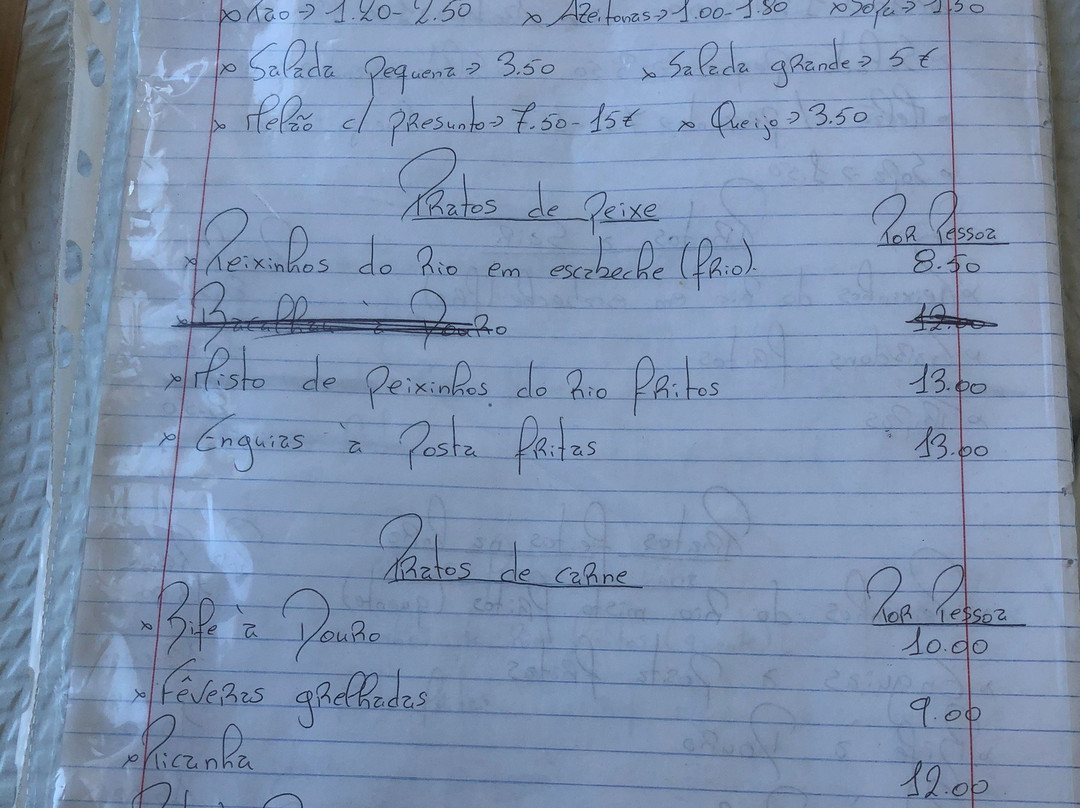 x Pão → 1.20 - 2.50 x Azeitonas → 1.00 - 1.50 x Sopa → 1.50
x Salada pequena → 3.50 x Salada grande → 5 €
x Melão c/ presunto → 7.50 - 15 € x Queijo → 3.50
Pratos de Peixe
Por Pessoa
x Peixinhos do Rio em escabeche (frio). 8.50
x Bacalhau à Douro 12.00
x Misto de peixinhos do Rio fritos 13.00
x Enguias à Posta fritas 13.00
Pratos de carne
Por Pessoa
x Bife à Douro 10.00
x Fêveras grelhadas 9.00
x Picanha 12.00